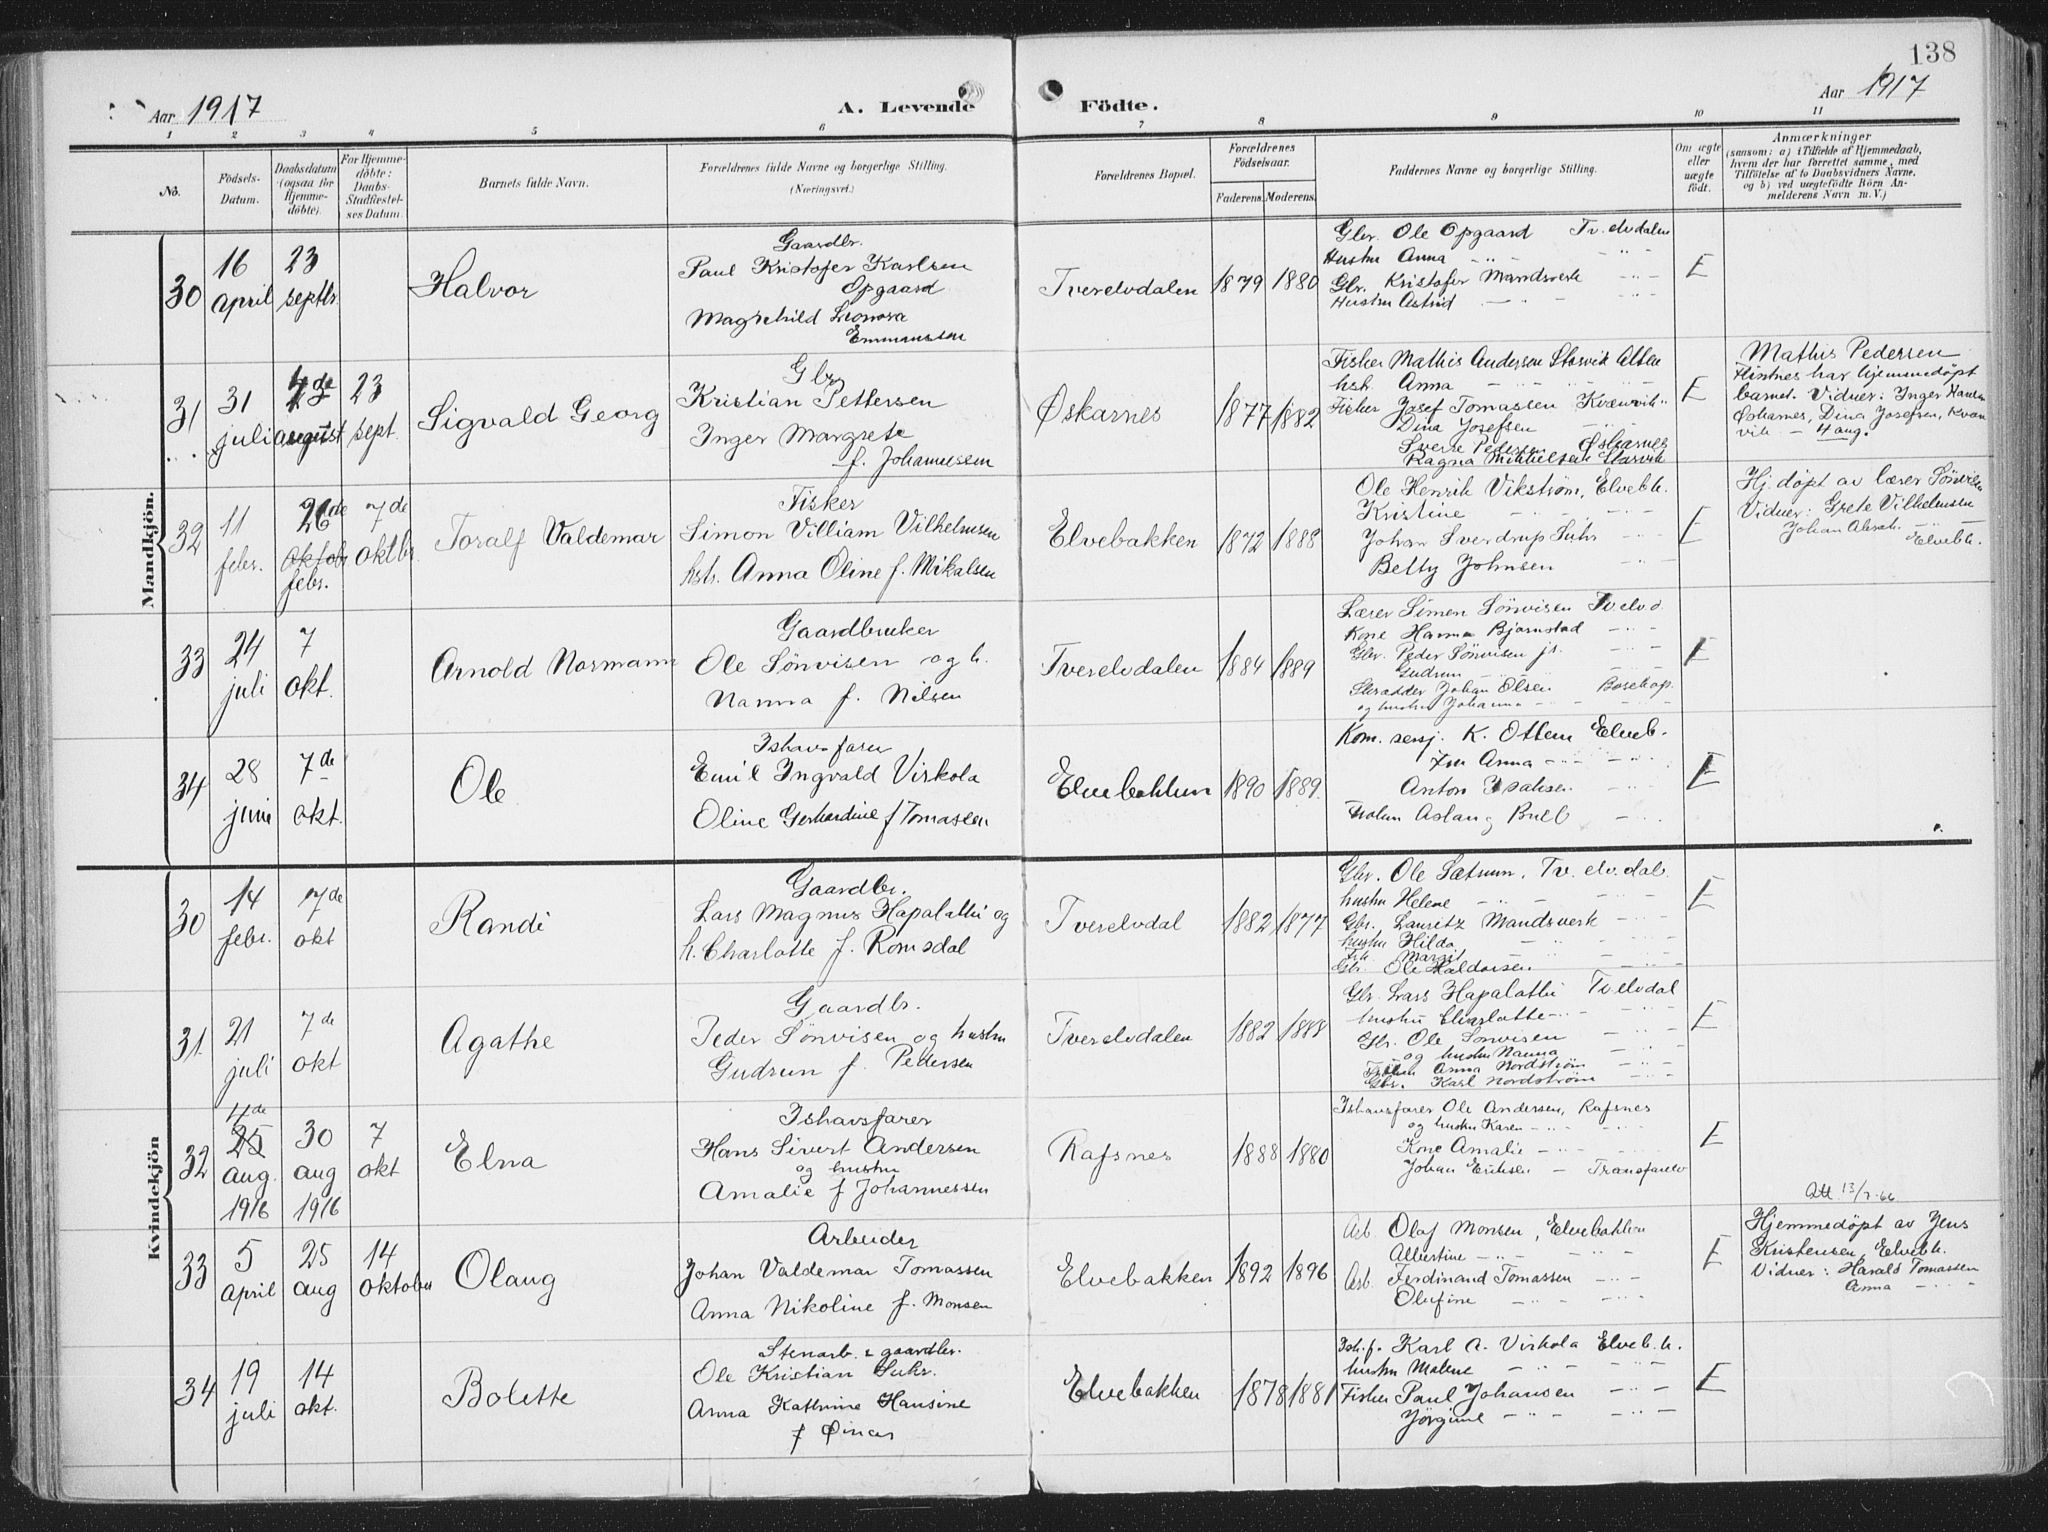 138
Aar 1917
A. Levende Födte.
Aar 1917
1 2 3 4 5 6 7 8 9 10 11
No.
Födsels-Datum.
Daabsdatum (ogsaa for Hjemme-döbte).
For Hjemme-döbte: Daabs-Stadfæstel-ses Datum.
Barnets fulde Navn.
Forældrenes fulde Navne og borgerlige Stilling. (Næringsvei.)
Forældrenes Bopæl.
Forældrenes Födselsaar.
Faderens. Moderens.
Faddernes Navne og borgerlig Stilling.
Om ægte eller uægte födt.
Anmærkninger
(saasom: a) i Tilfælde af Hjemmedaab,
hvem der har forrettet samme, med
Tilföielse af to Daabsvidners Navne,
og b) ved uægtefödte Börn An-
melderens Navn m. V.)
Mandkjön.
30
16 april
23 septbr.
Halvor
Gaardbr.
Paul Kristofer Karlsen
Opgaard
Magnhild Leonora
Emmanssen
Tverelvdalen
1879 1880
Gbr. Ole Opgaard Tv.elvdalen
Hustru Anna - " -
Gbr. Kristofer Mandsverk - " -
Hustru Astrid - " -
E
31
31 juli
4de august
23 sept.
Sigvald Georg
Gbr.
Kristian Pettersen
Inger Margrete
f. Johannessen
Øskarnes
1877 1882
Fisker Mathis Andersen Storvik Alten
hst. Anna - " -
Fisker Josef Tomassen Kvænvik "
Dina Josefsen - " -
Sverre Pedersen Øskarnes
Ragna Mikkelsen Storvik
E
Mathis Pedersen
har hjemmedøpt
barnet. Vidner: Inger
Øskarnes, Dina Josefsen, Kvæn
vik - 4 aug.
32
11 febr.
26de oktobr febr.
7de oktbr.
Toralf Valdemar
Fisker
Simon Villiam Vilhelmsen
hstr. Anna Oline f. Mikalsen
Elvebakken
1872 1888
Ole Henrik Vikstrøm, Elvebk.
Kristine - " -
Johan Sverdrup Suhr - " -
Betty Johnsen - " -
E
Hj. døpt av lærer Sønvisen
Vidner: Grete Vilhelmsen
Johan - " - Elvebk.
33
24 juli
7 okt.
Arnold Normann
Gaardbruker
Ole Sönvisen og h.
Nanna f. Nilsen
Tverelvdalen
1884 1889
Lærer Simen Sönvisen Tv.elvd.
Kone Hanna Bjørnstad - " -
Gbr. Peder Sönvisen jr. - " -
Gudrun - " -
Skrædder Johan Olsen Bosekop.
og hustru Johanna - " -
E
34
28 juni
7de okt.
Ole
Ishavsfarer
Emil Ingvald Virkola
Oline Gerhardine f Tomassen
Elvebakken
1890 1889.
Kom. sersj. K. Ottem Elveb.
Fru Anna - " -
Anton Isaksen - " -
Frøken Aslaug Bull - " -
E
Kvindekjön
30
14 febr.
7de okt
Randi
Gaardbr.
Lars Magnus Hapalathi og
h. Charlotte f. Romsdal
Tverelvdal
1882 1877
Gbr. Ole Sætrum, Tv.elvdal.
hustru Helene - " -
Gbr. Lauritz Mandsverk - " -
hustru Hilda - " -
Frk. Margit - " -
Gbr. Ole Haldorsen - " -
E
31
21 juli
7de okt
Agathe
Gaardbr.
Peder Sönvisen og hustru
Gudrun f. Pedersen
Tverelvdalen
1882 1888
Gbr. Lars Hapalathi Tv.elvdal
hustru Charlotte - " -
Gbr. Ole Sönvisen - " -
og hustru Nanna - " -
Frøken Anna Nordstrøm - " -
Gbr. Karl Nordstrøm - " -
E
32
4de 25 aug. 1916
30 aug 1916
7 okt
Elna
Ishavsfarer
Hans Sivert Andersen
og hustru
Amalie f Johannessen
Rafsnes
1888 1880
Ishavsfarer Ole Andersen, Rafsnes
og hustru Karen - " -
Kone Amalie - " -
Johan Eriksen - Transfarelv
E
Att 13/7-66
33
5 april
25 aug
14 oktober
Olaug
Arbeider
Johan Valdemar Tomassen
Anna Nikoline f. Monsen
Elvebakken
1892 1896
Arb. Olaf Monsen, Elvebakken
Albertine - " -
Arb. Ferdinand Tomassen - " -
Olufine - " -
E
Hjemmedøpt av Jens
Kristensen, Elvebk.
Vidner: Harald Tomassen
Anna - " -
34
19 juli
14 okt.
Bolette
Stenarb. & gaardbr.
Ole Kristian Suhr.
Anna Kathrine Hansine
f
Elvebakken
1878 1881
Ish.f. Karl A. Virkola Elveb.k.
hustru Malene - " -
Fisker Paul Johansen - " -
Jørgine - " -
E